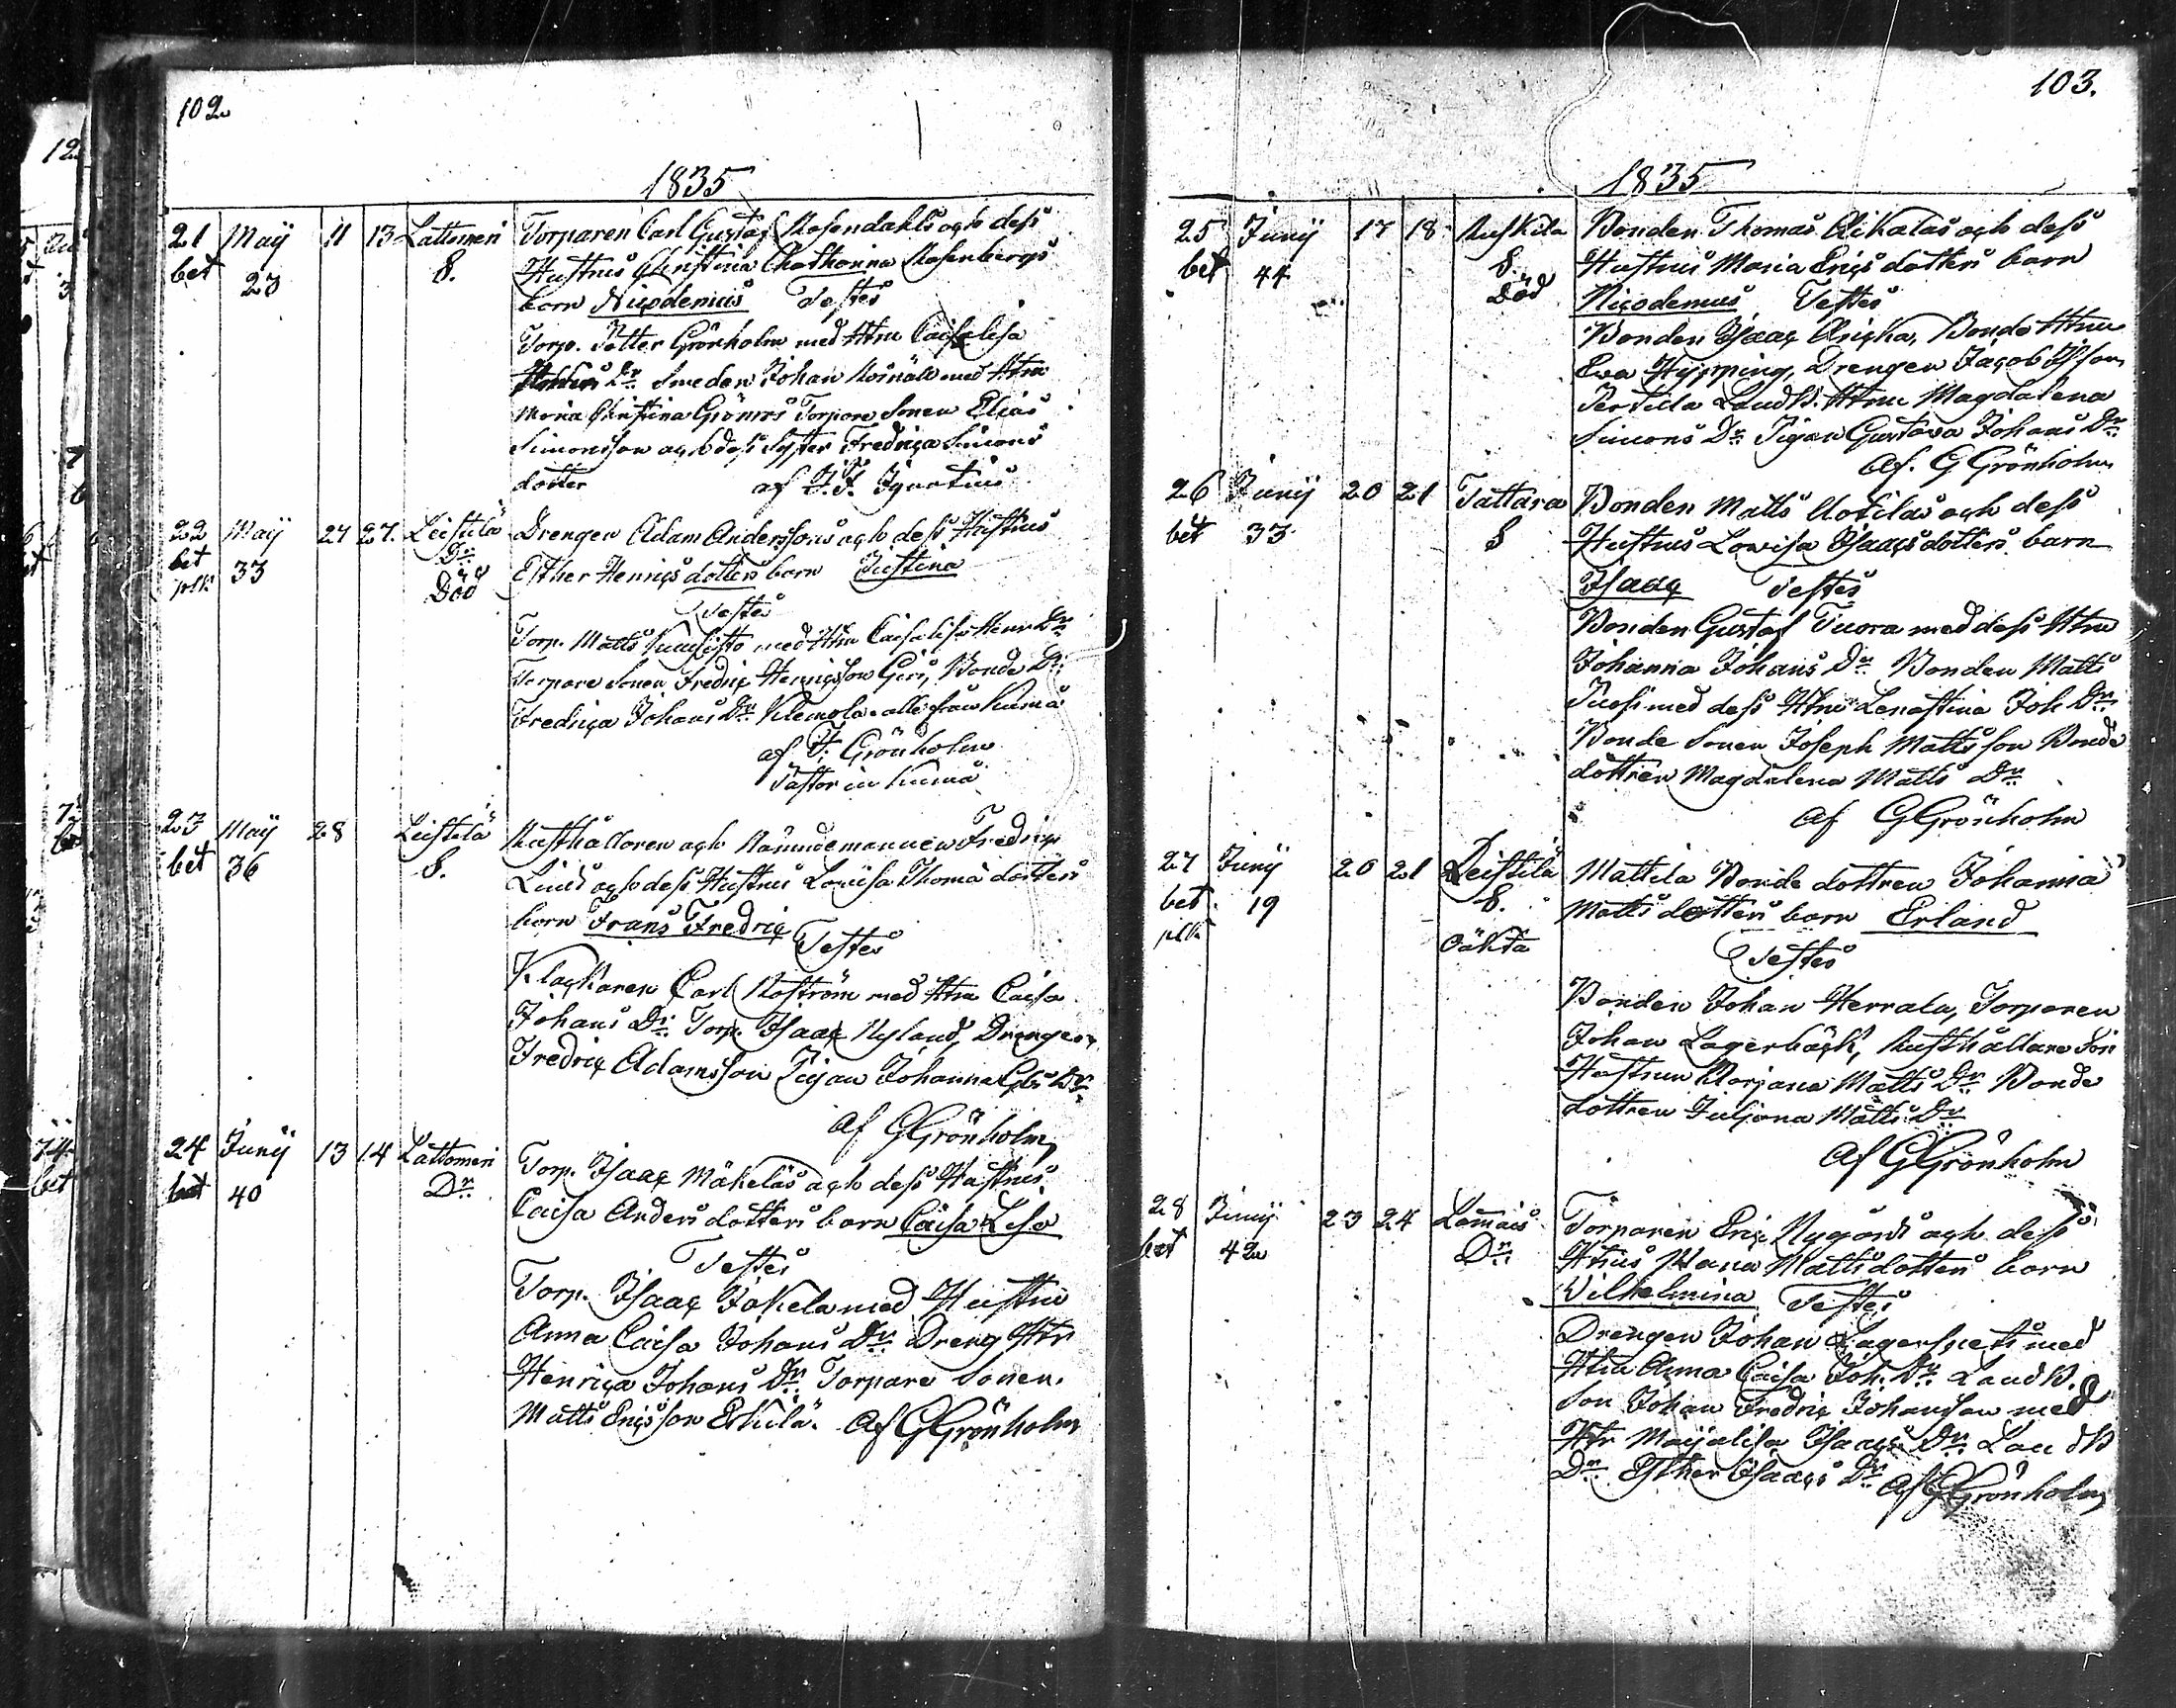 102
1835
21 Maij 11 13 Lattomeri Torparen Carl Gustaf Rosendahls och dess
bet 23 S. Hustrus Christina Chatharina Rosenbergs
barn Nicodemus Testes
Torp. Petter Grönholm med Htru Caisa Lisa
Dr Smeden Johan med Htru
Maria Christina Torpare Sonen Elias
Simonsson och dess Syster Fredrica Simons
dotter af J.F. Ignatius
22 Maij 24 27. Leistilä Drengen Adam Anderssons och dess Hustrus
bet 33 Dr Esther Henricsdotters barn Justina
plk Död
Testes
Torp. Matts med Htru Caisa Lisa Henr Dr
Torpare Sonen Fredric Henricsson Bonde Dr
Fredrica Johans Dr Klemola alla från Kumå
af F. Grönholm
Pastor in Kumå
23 Maij 28 Leistilä Rusthållaren och Nämndemannen Fredric
bet 36 S. Linds och dess Hustrus Lovisa Thomä dotters
barn Frans Fredric
Testes
Klockaren Carl Roström med Htru Caisa
Johans Dr Torp. Isaac Nylund, Drengen
Fredric Adamsson Pigan Johanna Dr
Af GGrönholm
24 Junij 13 14 Lattomeri Torp. Isaac Mäkeläs och dess Hustrus
bet 40 Dr Caisa Anders dotters barn Caisa Lisa
Testes
Torp. Isaac Jokela med Hustru
Anna Caisa Johans Dr Dreng Htr
Henrica Johans Dr Torpare Sonen
Matts Ericsson Eskilä. Af GGrönholm
103.
1835
25 Junij 17 18 Ruskila Bonden Thomas Aikalas och dess
bet 44 S. Hustrus Maria Erics dotters barn
Död Nicodemus Testes
Bonden Isaac Bonde Htru
Eva Hypping, Drengen Jacob Isson
Pertula LandB. Htru Magdalena
Simons Dr Pigan Gustava Johans Dr
Af. G Grönholm
26 Junij 20 21 Tattara Bonden Matts Uotilas och dess
bet 33 S Hustrus Lovisa Isaacsdotters barn
Isaac Testes
Bonden Gustaf Tuora med dess Htru
Johanna Johans Dr Bonden Matts
med dess Htru Lenastina Joh Dr
Bonde Sonen Joseph Mattsson Bonde
dottren Magdalena Matts Dr
Af GGrönholm
27 Junij 20 21 Leistilä Mattila Bonde dottren Johanna
bet 19 S. Matts dotters barn Erland
plk Oäkta
Testes
Bonden Johan Herrala, Torparen
Johan Lagerbäck, Rusthållare Son
Hustrun Marjana Matts Dr Bonde
dottren Juljana Matts Dr
Af GGrönholm
28 Junij 23 24 Lammais Torparen Eric Nygårds och dess
bet 42 Dr Htrus Maria Mattsdotters barn
Wilhelmina Testes
Drengen Johan Lagerspets med
Htru Anna Caisa Joh. Dr LandB.
Son Johan Fredric Johansson med
Htr Maijalisa Isaacs Dr Land B
Dr Esther Isaacs Dr Af GGrönholm